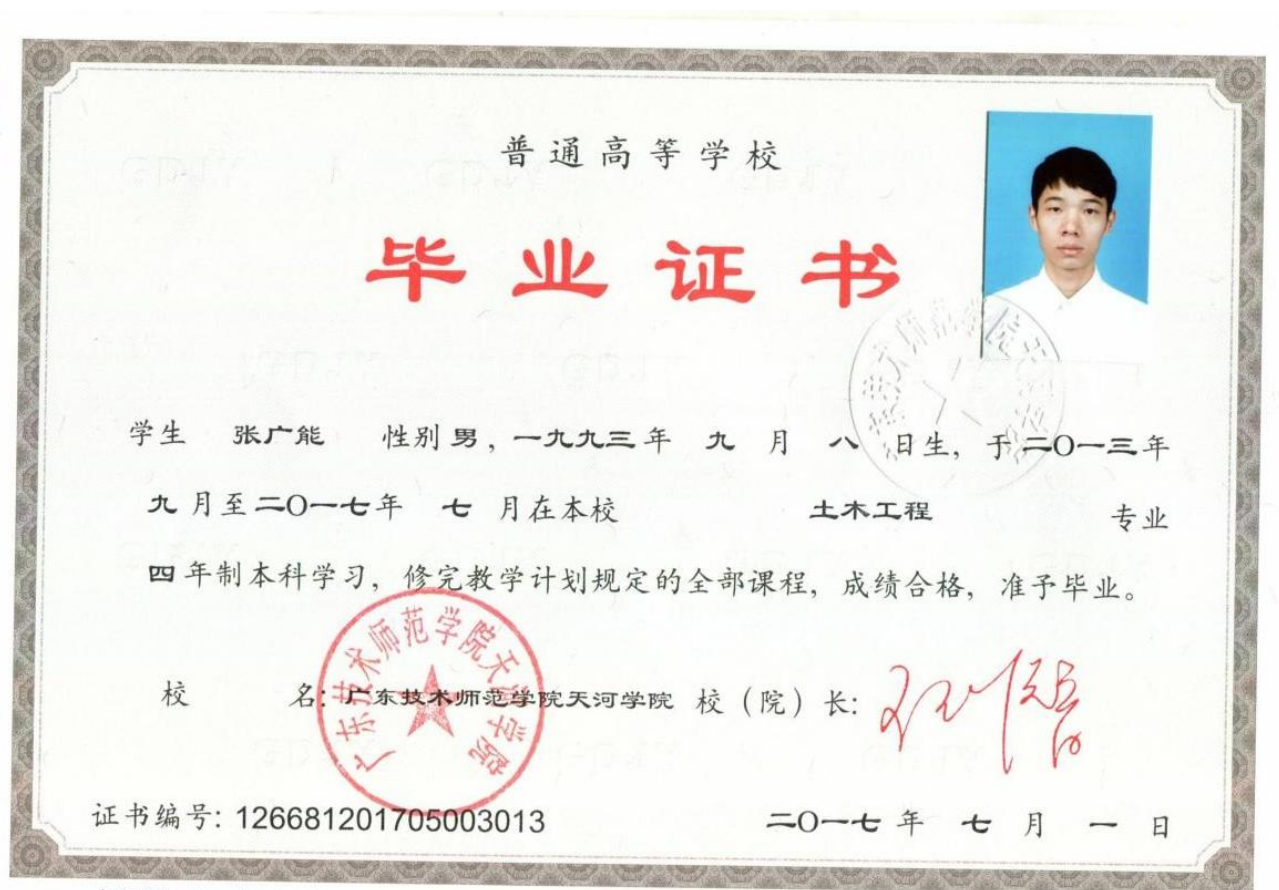 普通高等学校
毕业证书
学生 张广能 性别 男，一九九三年 九 月 八 日生，于二O一三年
九 月至二O一七年 七 月在本校 土木工程 专业
四 年制本科学习，修完教学计划规定的全部课程，成绩合格，准予毕业。
广东技术师范学院天河学院
校 名：广东技术师范学院天河学院 校（院）长：
证书编号：126681201705003013 二O一七 年 七 月 一 日